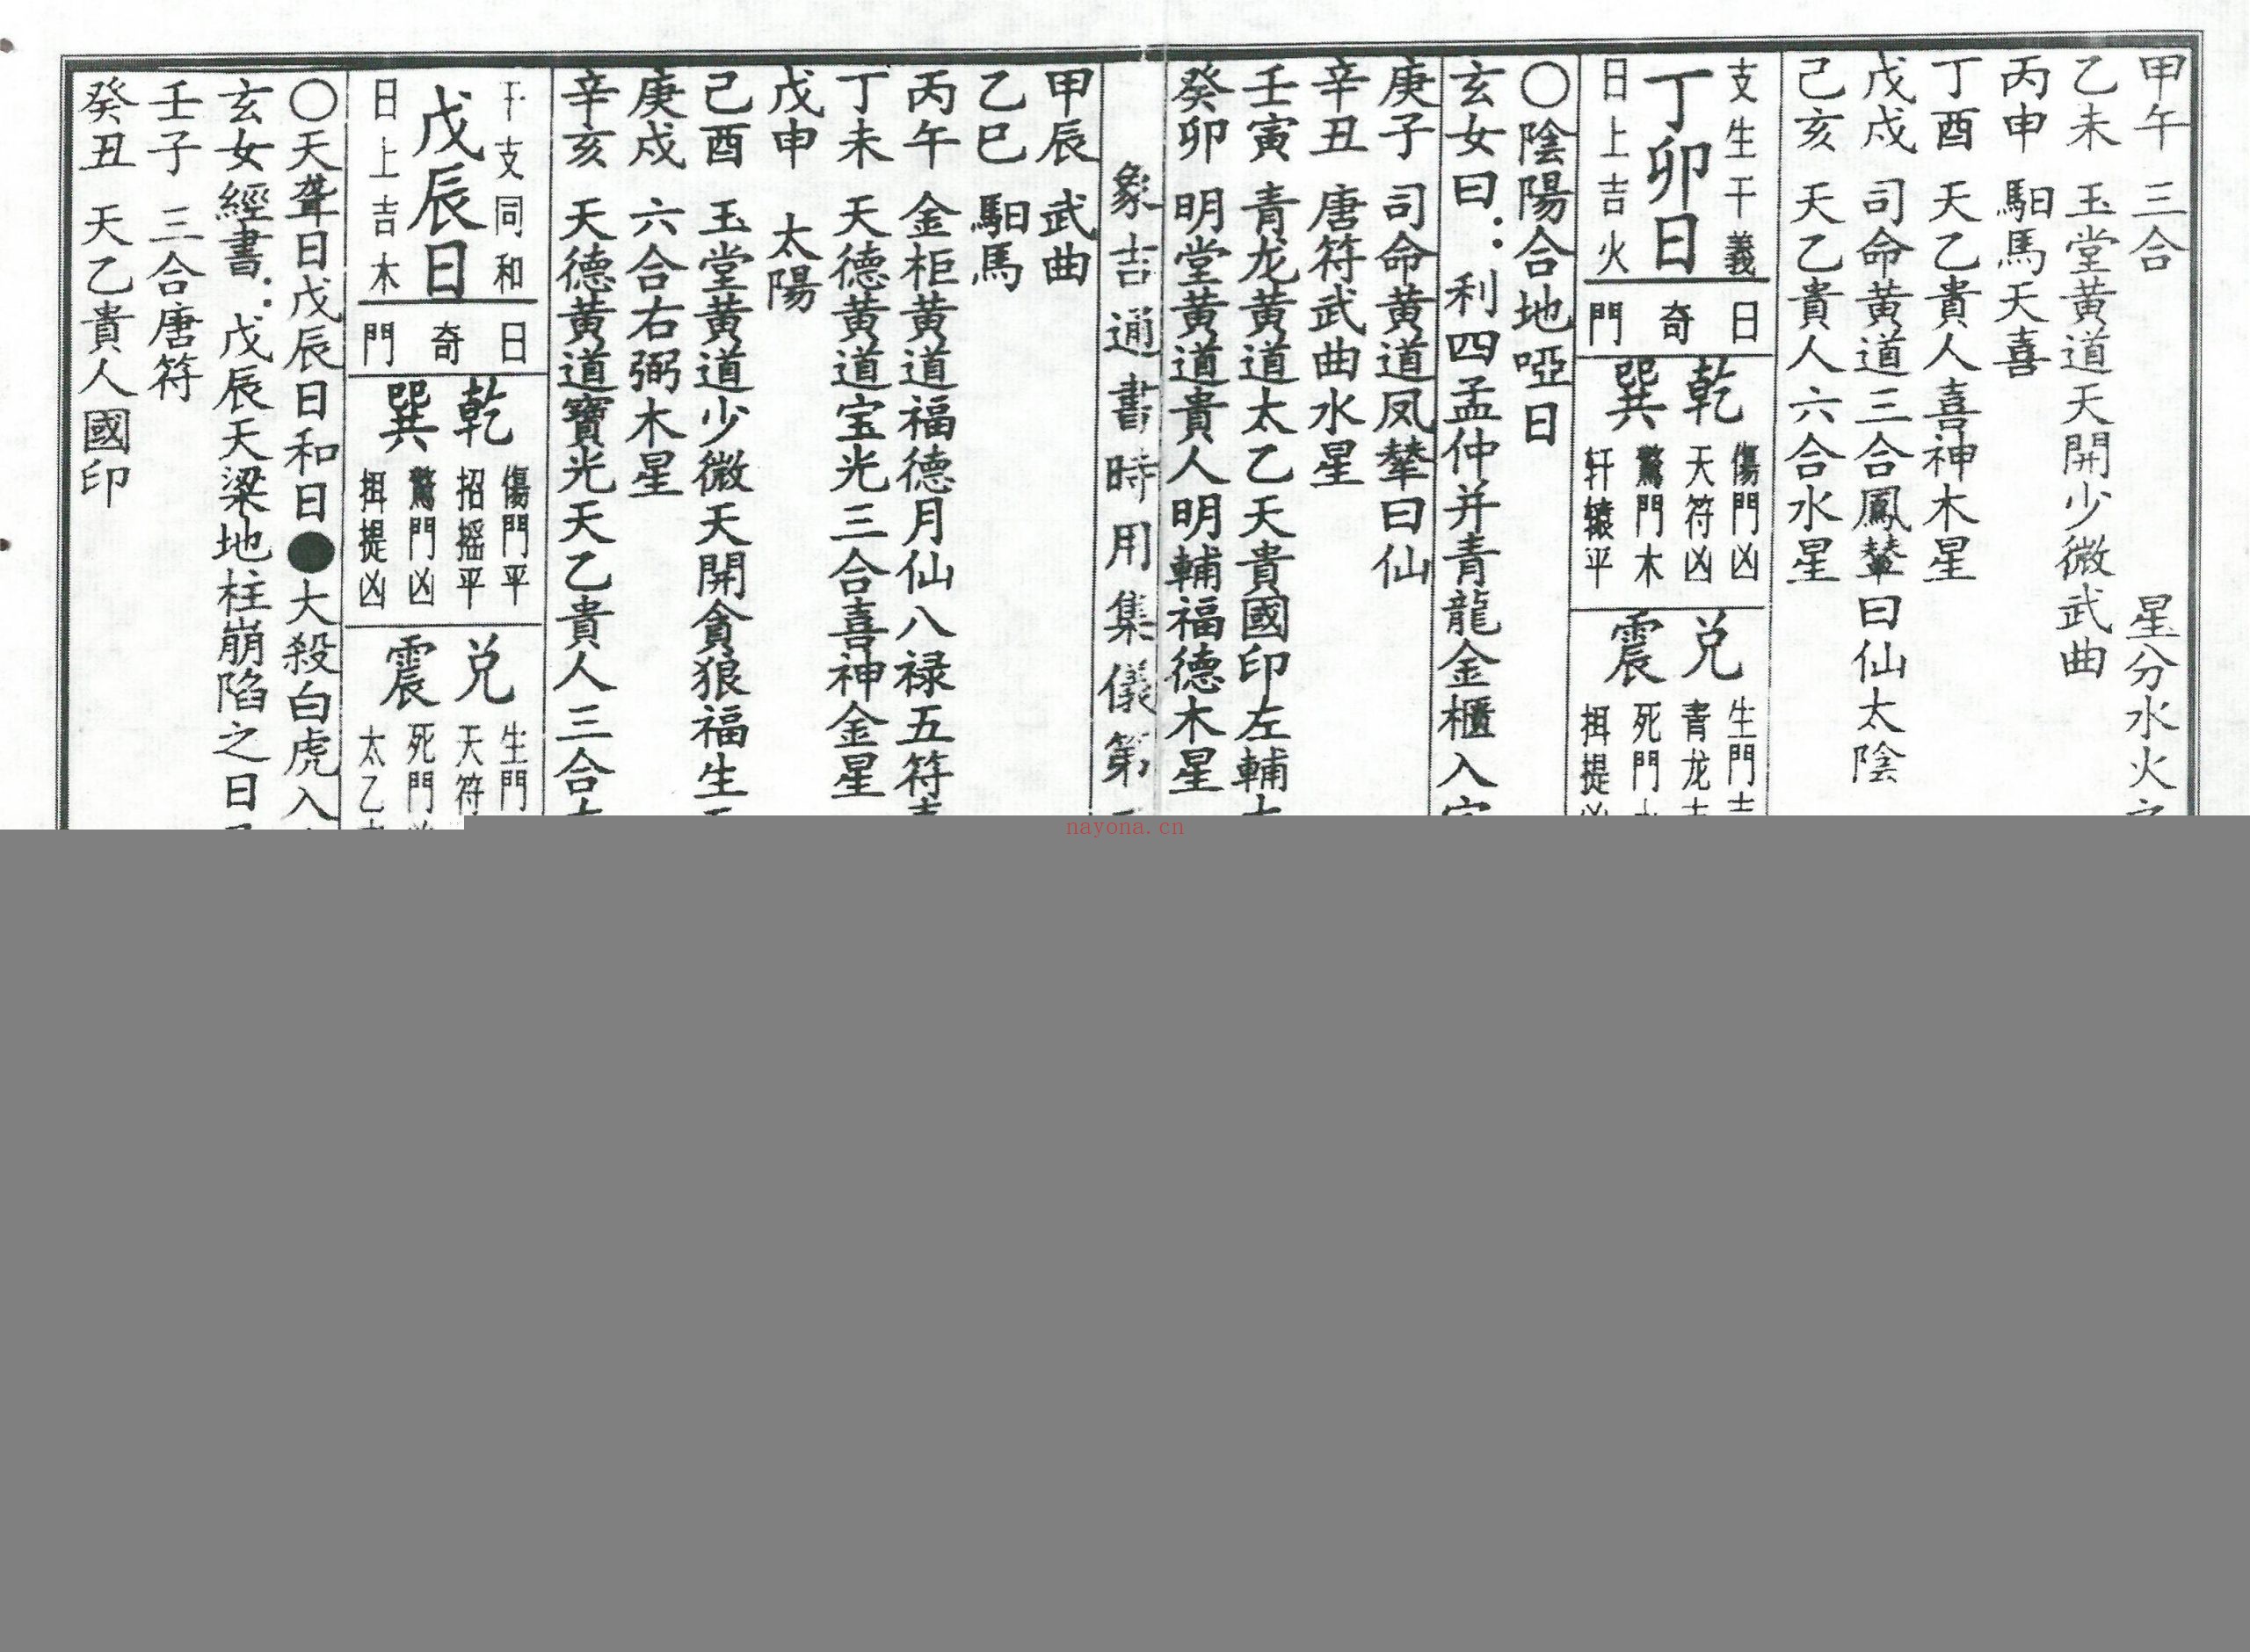 甲午　三合　星分水火之
乙未　玉堂黄道天開少微武曲
丙申　馹馬天喜
丁酉　天乙貴人喜神木星
戊戌　司命黄道三合鳳輦曰仙太陰
己亥　天乙貴人六合水星
支生干義
丁卯日
日上吉火
日奇門
乾巽
傷門凶
天符凶
驚門木
轩辕平
兑震
生門吉
青龙吉
死門
抯提凶
〇陰陽合地啞日
玄女曰：利四孟仲并青龍金櫃入宅
庚子　司命黄道凤輦曰仙
辛丑　唐符武曲水星
壬寅　青龙黄道太乙天貴國印左輔
癸卯　明堂黄道貴人明輔福德木星
象吉通書時用集儀第
甲辰　武曲
乙巳　馹馬
丙午　金柜黄道福德月仙八禄五符
丁未　天德黄道宝光三合喜神金星
戊申　太陽
己酉　玉堂黄道少微天開貪狼福生
庚戌　六合右弼木星
辛亥　天德黄道寶光天乙貴人三合
干支同和
戊辰日
日上吉木
日奇門
乾巽
傷門平
招摇平
驚門凶
抯提凶
兑震
生門
天符
死門
太乙
〇天聋日戊辰日和日●大殺白虎入
玄女經書：戊辰天梁地柱崩陷之日
壬子　三合唐符
癸丑　天乙貴人國印
nayona.cn